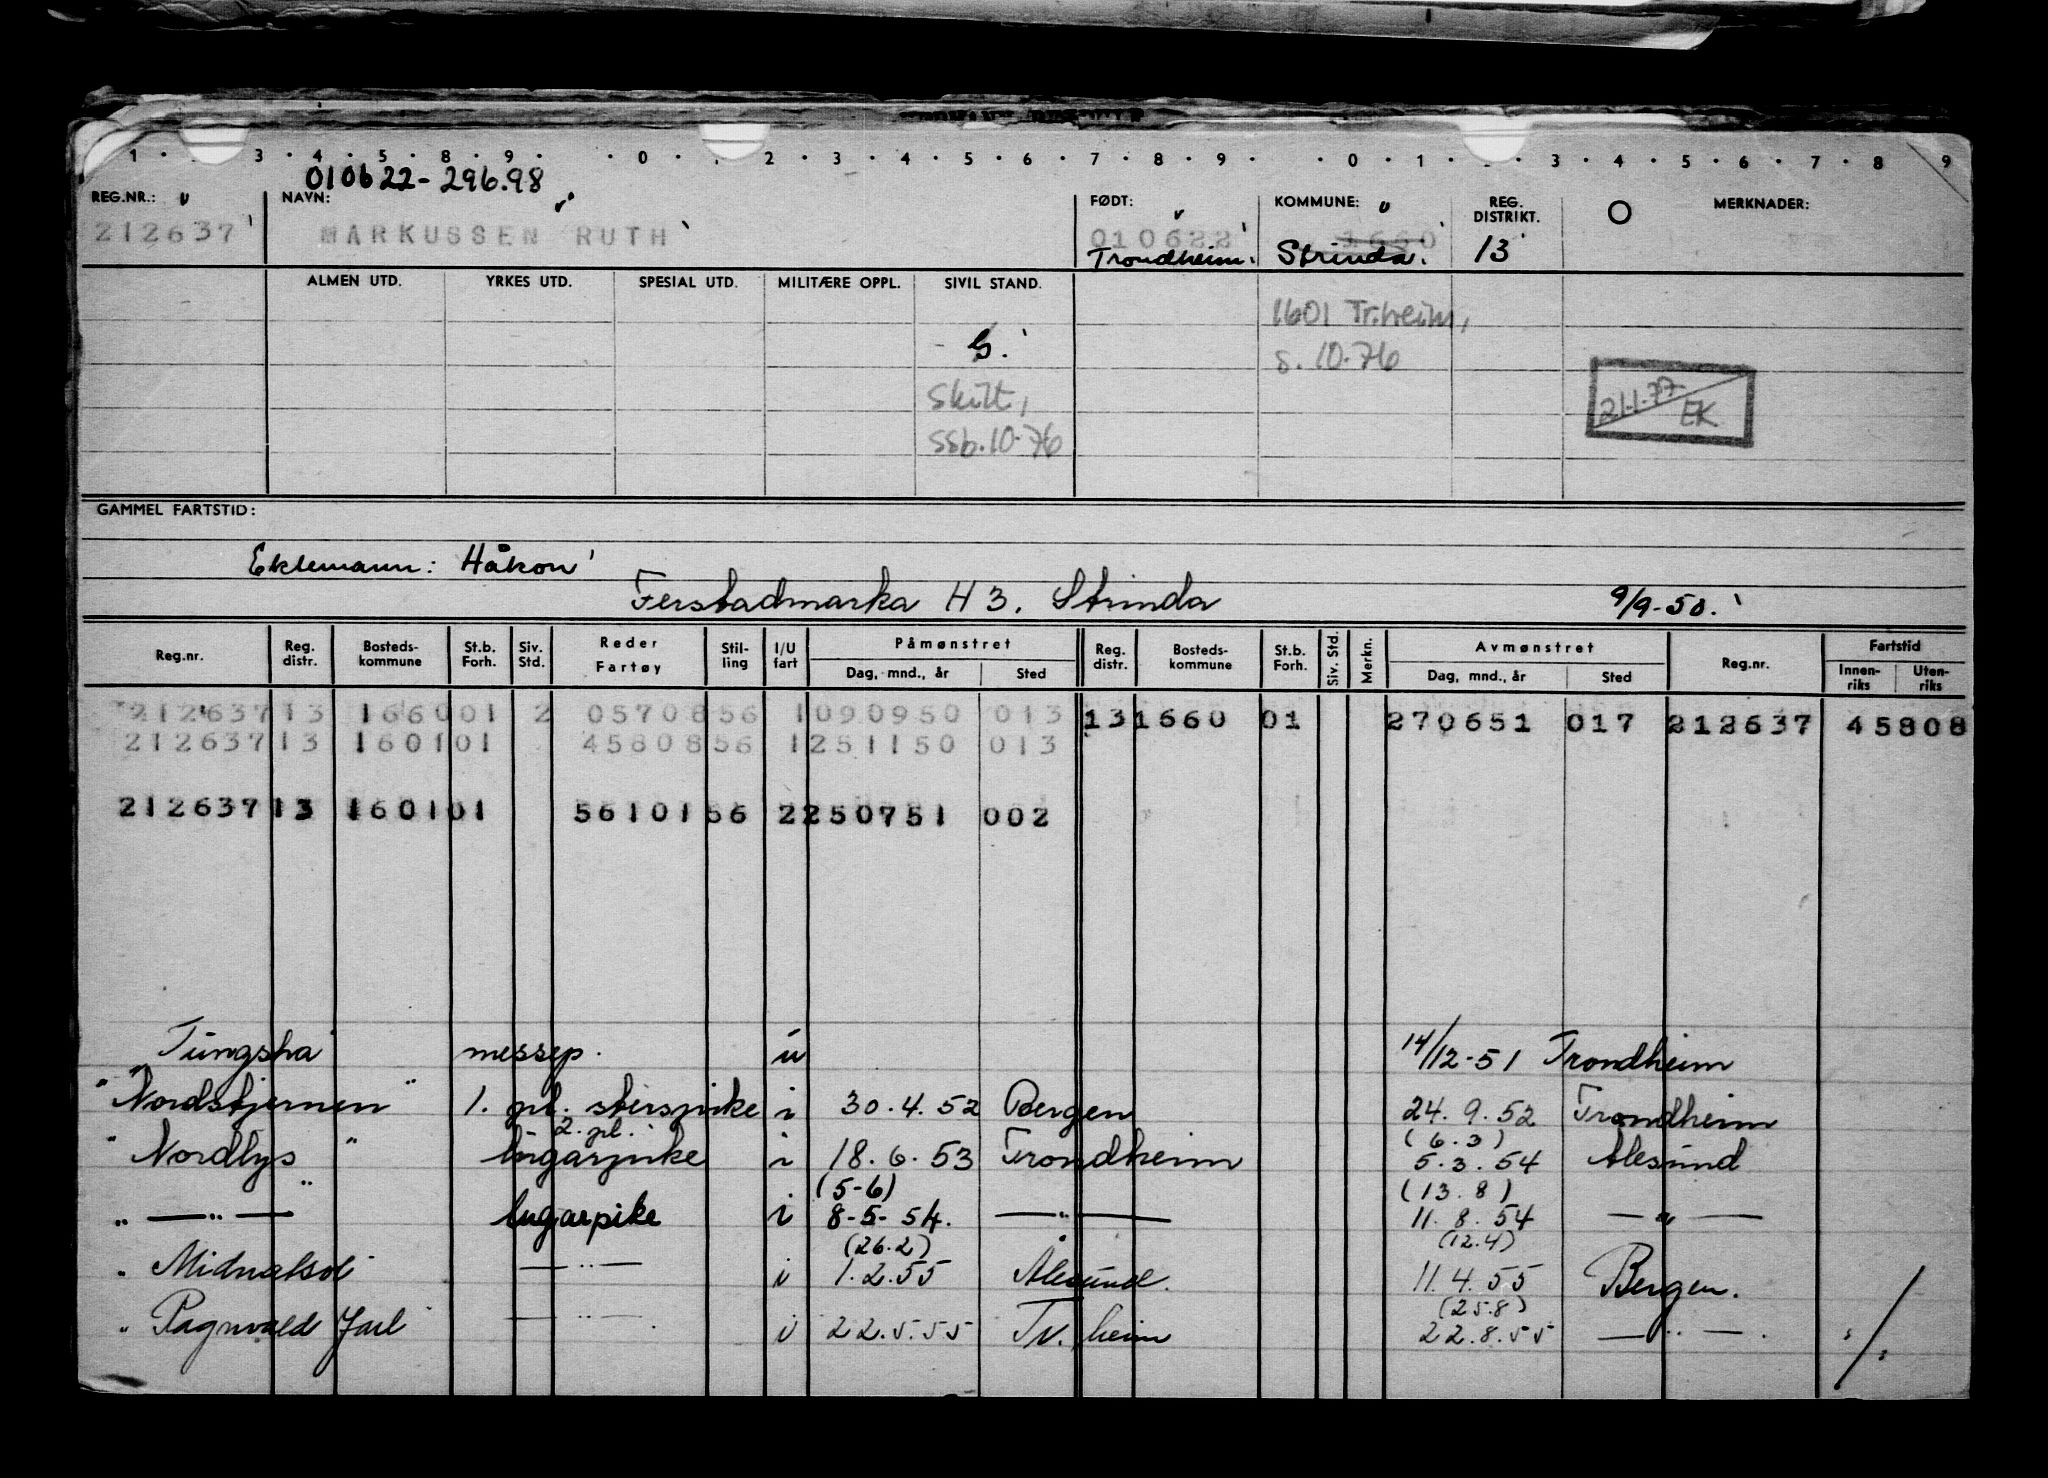 1 · · 3 · 4 · 5 · 8 · 9 · · 0 · · 2 · 3 · 4 · 5 · 6 · 7 · 8 · 9 · · 0 · 1 · · 3 · 4 · 5 · 6 · 7 · 8 9
010622-296.98
REG.NR.: NAVN: FØDT: KOMMUNE: REG. DISTRIKT. O MERKNADER:
212637 MARKUSSEN RUTH 010622 1660
Trondheim. Strinda. 13
ALMEN UTD. YRKES UTD. SPESIAL UTD. MILITÆRE OPPL. SIVIL STAND.
1601 Tr.heim,
G. s. 10.76
Skilt, 21-1-77 EK
ssb.10-76
GAMMEL FARTSTID:
Ektemann: Håkon
Ferstadmarka H 3. Strinda 9/9-50.
Reg.nr. Reg. distr. Bosteds-kommune St.b. Forh. Siv. Std. Reder Fartøy Stil-ling I/U fart Påmønstret Dag, mnd., år Sted Reg. distr. Bosteds-kommune St.b. Forh. Siv. Std. Merkn. Avmønstret Dag, mnd., år Sted Reg.nr. Fartstid Innen-riks Uten-riks
212637 13 1660 01 2 05708 56 1 090950 013 13 1660 01 270651 017 212637 45808
212637 13 1601 01 45808 56 1 251150 013
212637 13 1601 01 56101 56 2 250751 002
Tungsha messep. u 14/12-51 Trondheim
"Nordstjernen" 1. pl. sterspike i 30.4.52 Bergen 24.9.52 Trondheim
2. pl. (6.3)
"Nordlys" lugarpike i 18.6.53 Trondheim 5.3.54 Ålesund
(5-6) (13.8)
" — " — " lugarpike i 8-5-54. — " — 11.8.54 — " —
(26.2) (12.4)
" Midnatsol — " — i 1.2.55 Ålesund. 11.4.55 Bergen.
(25.8)
" Ragnvald Jarl — " — i 22.5.55 Tr.heim 22.8.55 — " — .